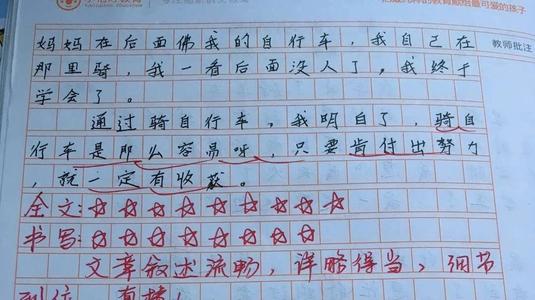 把最好的教育献给最可爱的孩子
教师批注
妈妈在后面佛我的自行车，我自己在
那里骑，我一看后面没人了，我终于
学会了。
通过骑自行车，我明白了，骑自
行车是那么容易呀，只要肯付出努力
，就一定有收获。
全文：☆☆☆☆☆☆☆☆☆
书写：☆☆☆☆☆☆☆☆
文章叙述流畅，详略得当，细节
到位，真棒！